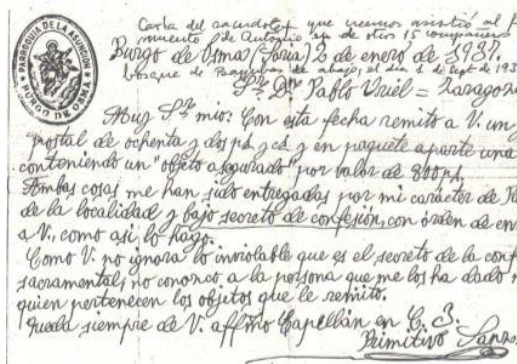 PARROQUIA DE LA ASUNCION
BURGO DE OSMA
Carta del sacerdote que creemos asistió al f
de Antonio y de otros 15 compañeros
Burgo de Osma (Soria) 2 de enero de 1937.
bosque de de abajo, el día 1 de Sept de 193
Sr. Dn. Pablo Uriel = Zaragoza
Muy Sr. mio: Con esta fecha remito a V. un
postal de ochenta y dos pts y en paquete aparte una
conteniendo un "objeto asegurado" por valor de 800 pts.
Ambas cosas me han sido entregadas por mi carácter de
de la localidad y bajo secreto de confesión, con órden de en
a V., como asi lo hago.
Como V. no ignora lo inviolable que es el secreto de la conf
sacramental, no conozco a la persona que me los ha dado
quien pertenecen los objetos que le remito.
Queda siempre de V. affmo Capellán en C. J.
Primitivo Sanz